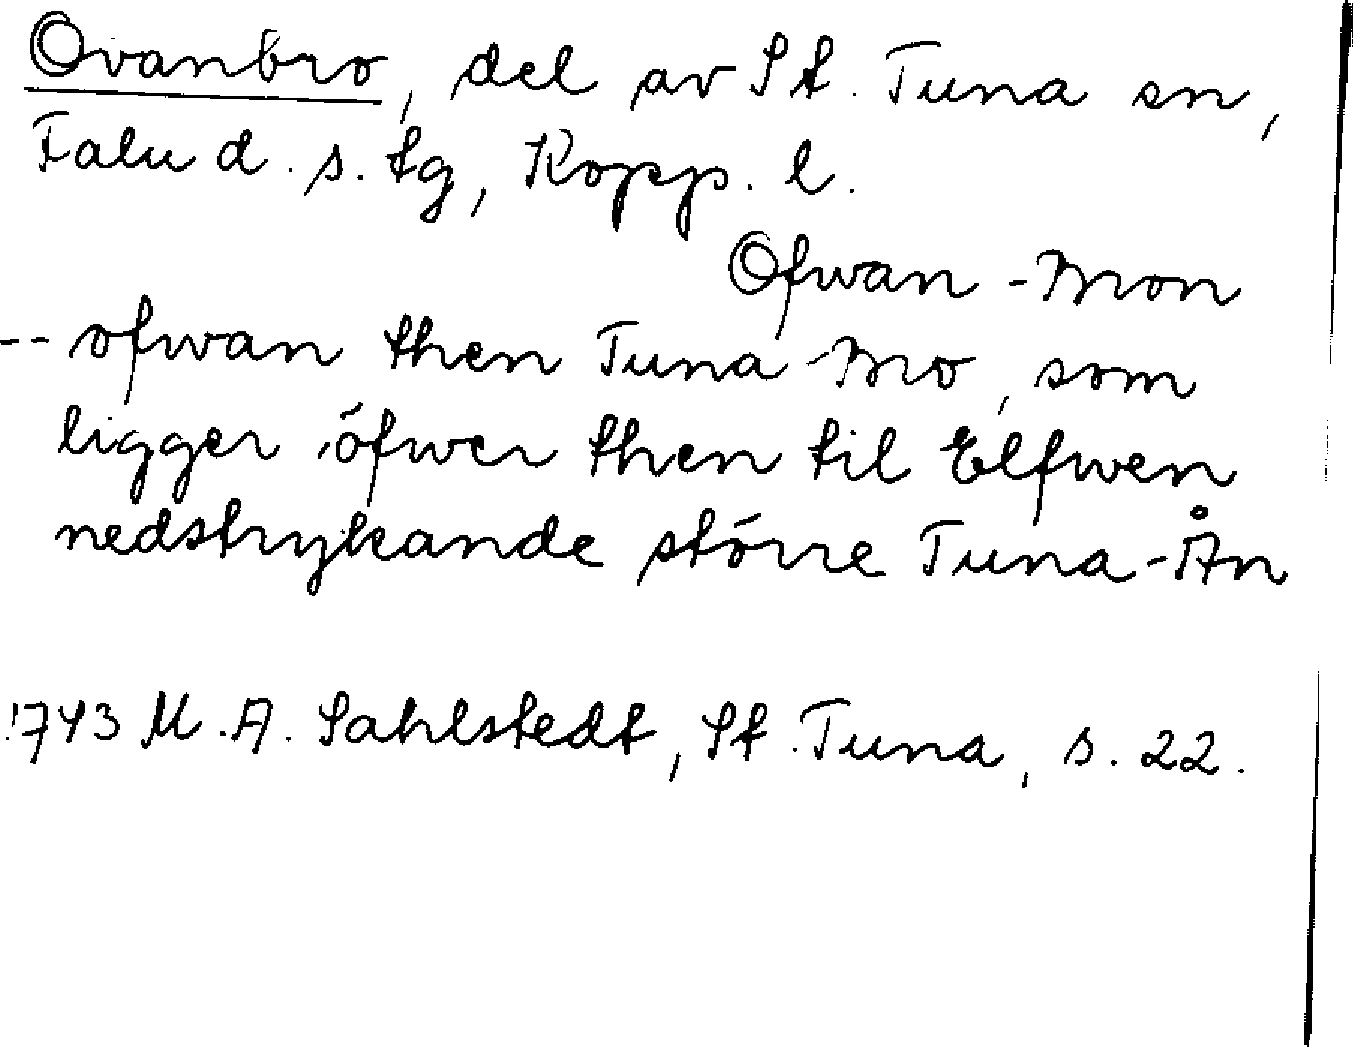 Ovanbro, del av St. Tuna sn,
Falu d. s. tg, Kopp. l.
Ofwan-Mon
-- ofwan then Tuna Mo, som
ligger öfwer then til Elfwen
nedstrykande större Tuna-Ån
1743 M. A. Sahlstedt, St. Tuna, s. 22.